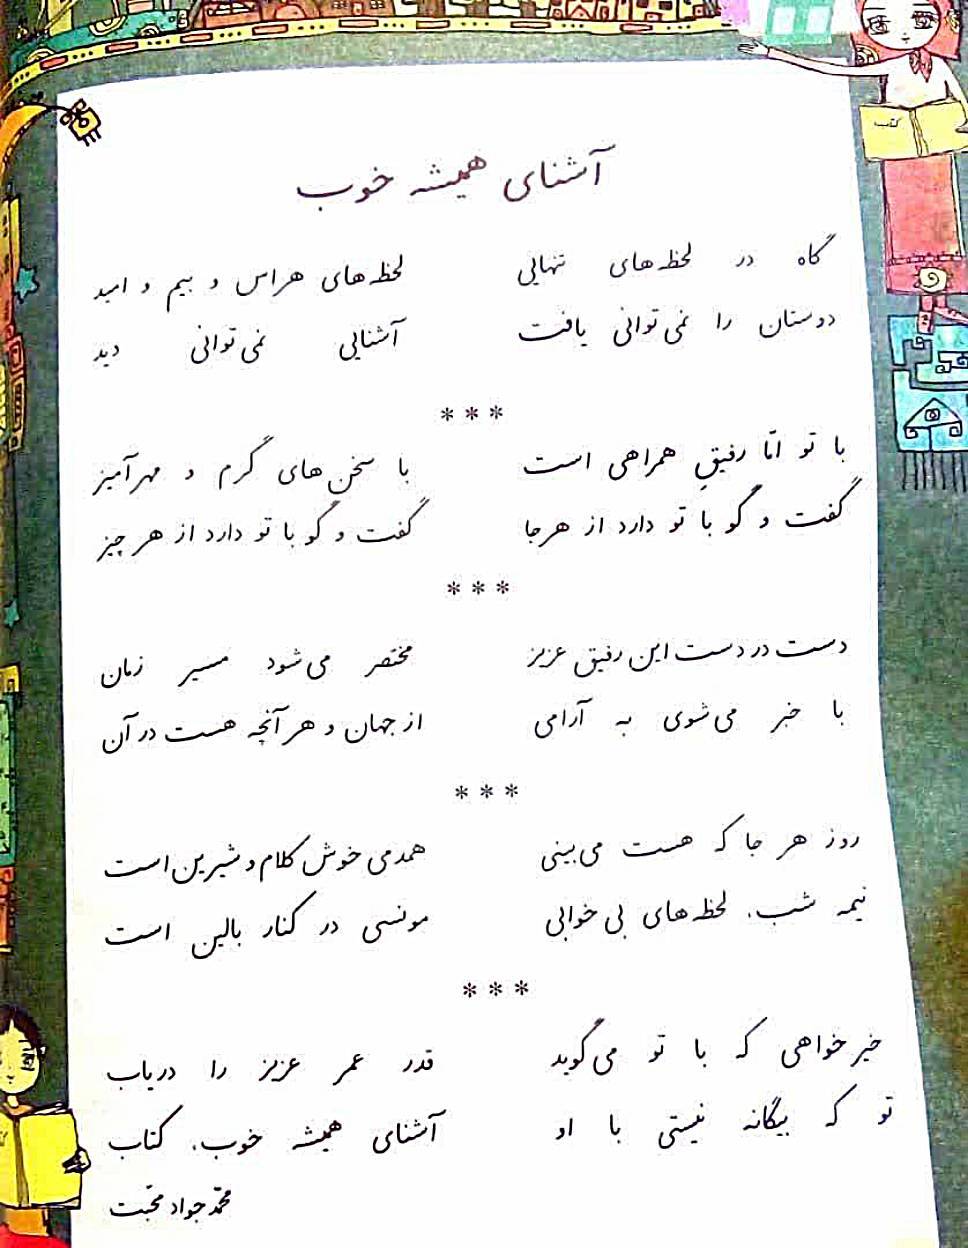 کتاب
آشنای همیشه خوب
گاه در لحظه‌های تنهایی لحظه‌های هراس و بیم و امید
دوستان را نمی‌توانی یافت آشنایی نمی‌توانی دید
***
با تو امّا رفیقِ همراهی است با سخن‌های گرم و مهرآمیز
گفت و گو با تو دارد از هرجا گفت و گو با تو دارد از هر چیز
***
دست در دست این رفیق عزیز مختصر می‌شود مسیر زمان
با خبر می‌شوی به آرامی از جهان و هر آنچه هست در آن
***
روز هر جا که هست می‌بینی همدمی خوش کلام و شیرین است
نیمه شب، لحظه‌های بی‌خوابی مونسی در کنار بالین است
***
خیرخواهی که با تو می‌گوید قدر عمر عزیز را دریاب
تو که بیگانه نیستی با او آشنای همیشه خوب، کتاب
محمّدجواد محبّت